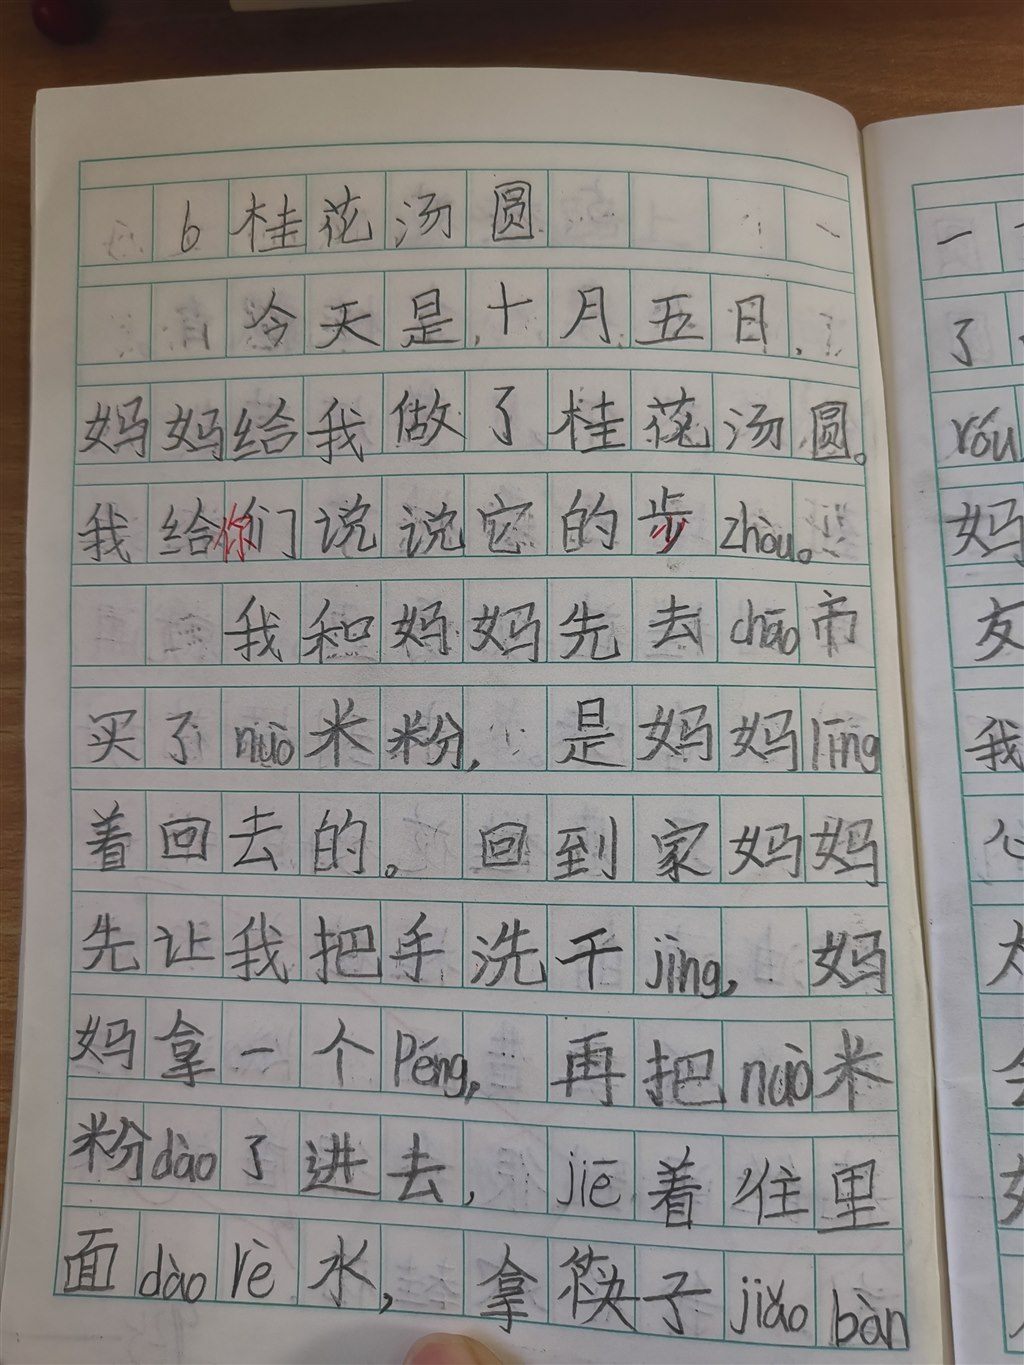 6 桂花汤圆
今天是十月五日,
妈妈给我做了桂花汤圆。
我给你们说说它的步zhòu。
我和妈妈先去chāo市
买了nuò米粉,是妈妈līng
着回去的。回到家妈妈
先让我把手洗干jìng,妈
妈拿一个Péng,再把nuò米
粉dào了进去,jiē着往里
面dào rè水,拿筷子jiǎo bàn
一
了
róu
妈
友
我
心